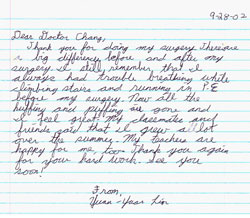 9-28-02
Dear Doctor Chang,
Thank you for doing my surgery. There are
a big difference before and after my
surgery. I still remember that I
always had trouble breathing while
climbing stairs and running in P.E
before my surgery. Now all the
huffing and puffing are gone and
I feel great! My classmates and
friends said that I grew a lot
over the summer. My teachers are
happy for me too. Thank you again
for your hard work. See you
soon!
From,
Yuan-Year Lin